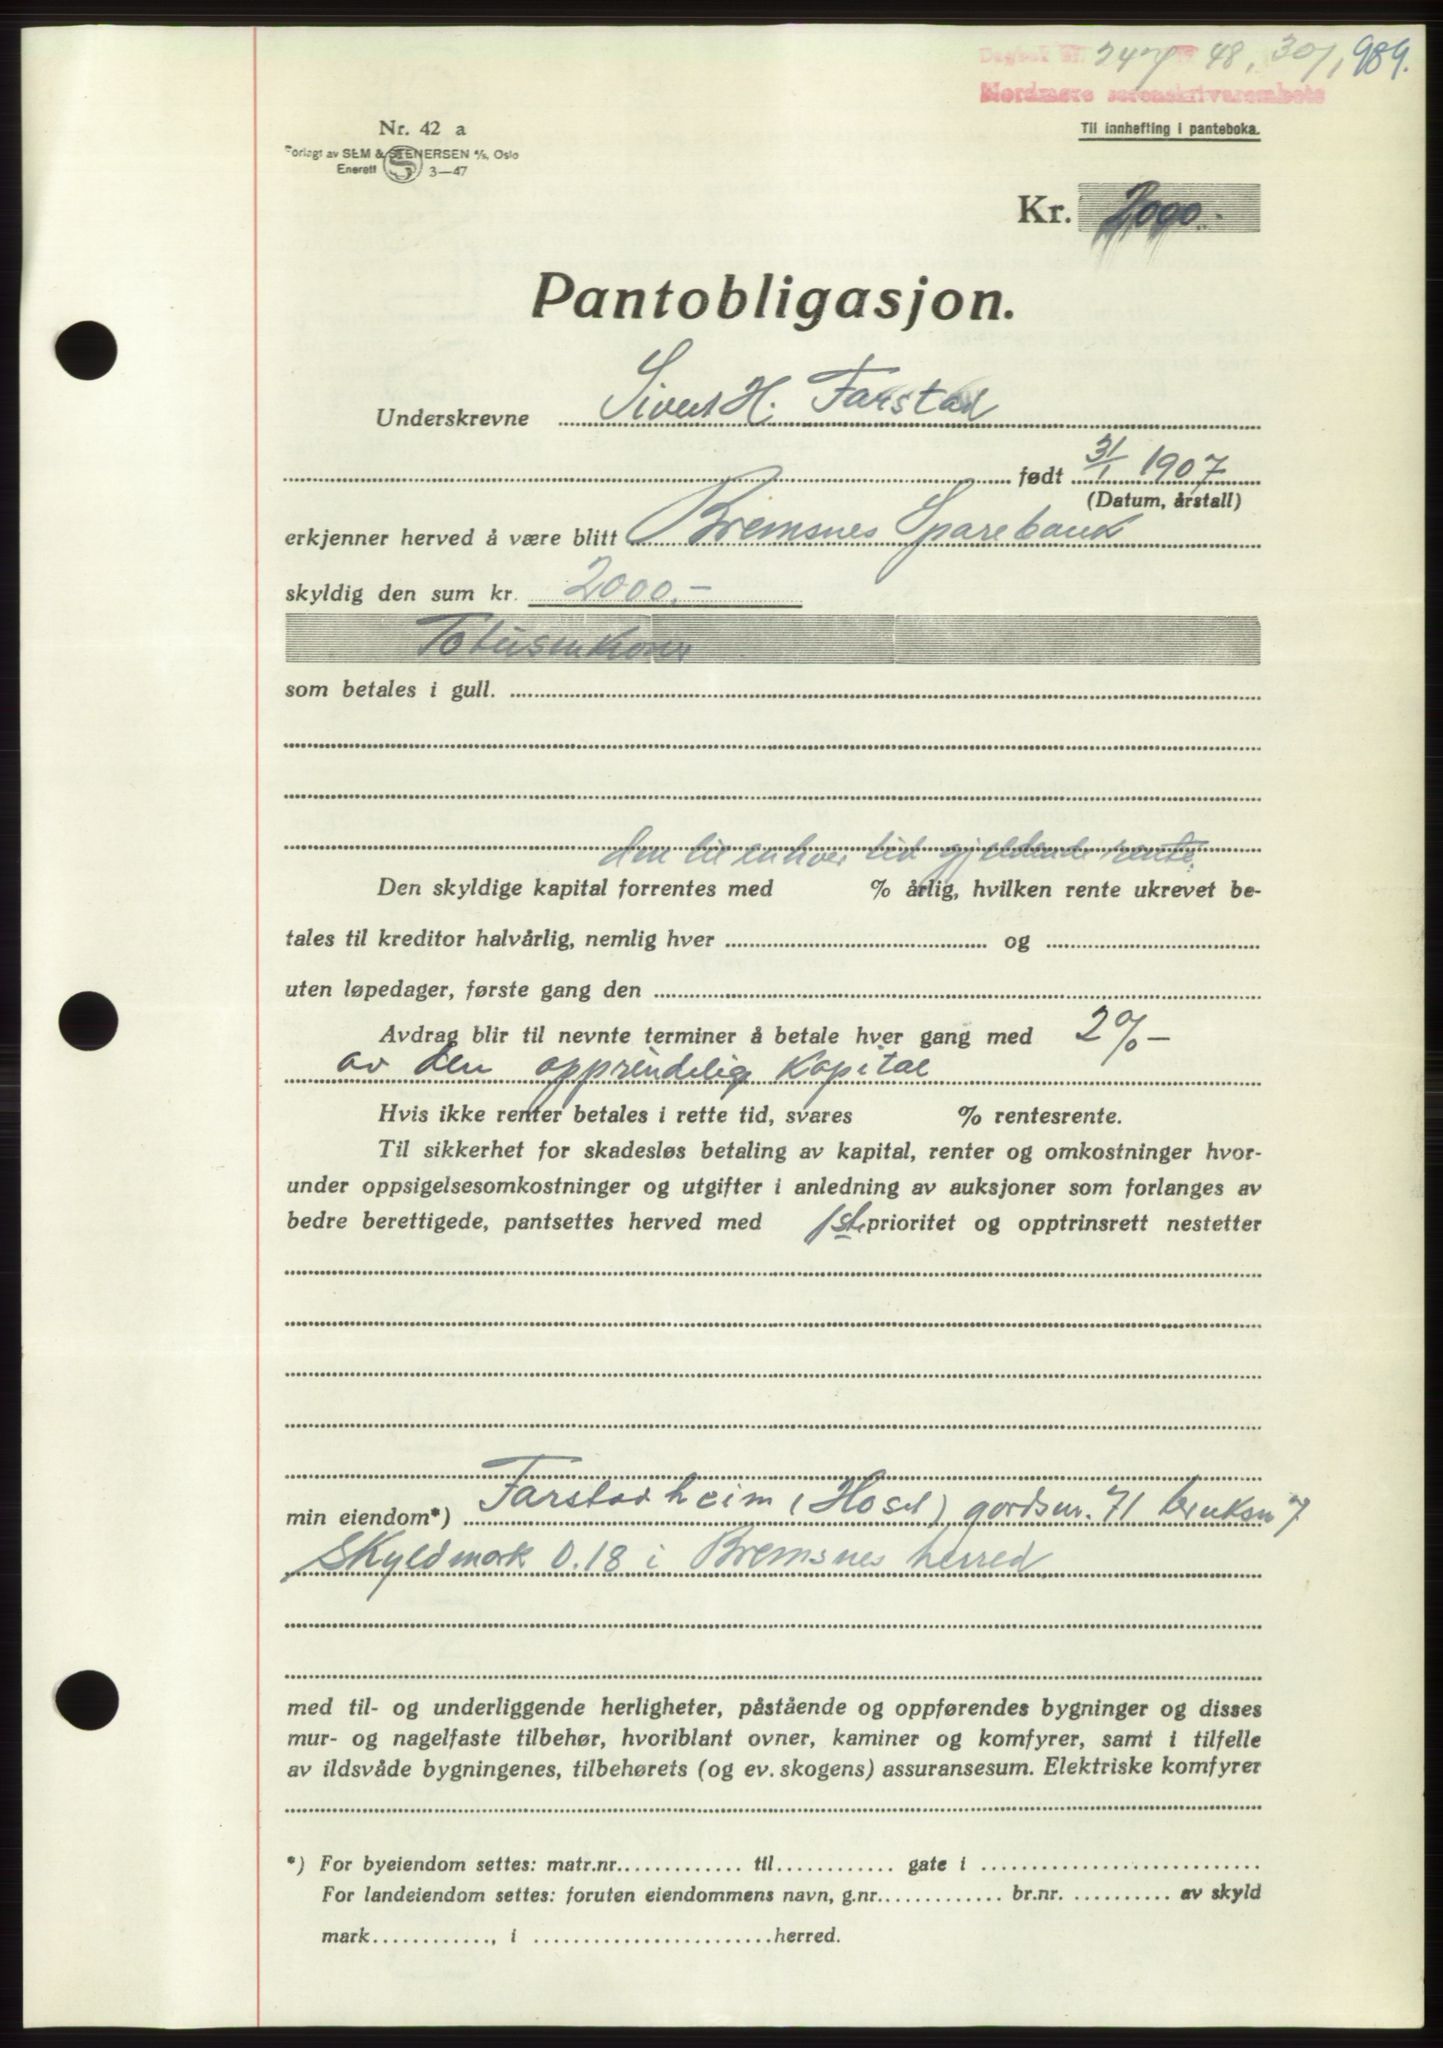 Dagbok nr. 247 48, 30/1 989.
Nordmøre sorenskriverembete
Nr. 42 a
Til innhefting i panteboka.
Forlagt av SEM & STENERSEN A/S, Oslo
Enerett S 3—47
Kr. 2000.-
Pantobligasjon.
Underskrevne Sivert H. Farstad
født 31/1 1907
(Datum, årstall)
erkjenner herved å være blitt Bremsnes Sparebank
skyldig den sum kr. 2000.-
Totusenkroner
som betales i gull.
den til enhver tid gjeldende rente.
Den skyldige kapital forrentes med % årlig, hvilken rente ukrevet be-
tales til kreditor halvårlig, nemlig hver og
uten løpedager, første gang den
Avdrag blir til nevnte terminer å betale hver gang med 2%-
av den opprindelig Kapital
Hvis ikke renter betales i rette tid, svares % rentesrente.
Til sikkerhet for skadesløs betaling av kapital, renter og omkostninger hvor-
under oppsigelsesomkostninger og utgifter i anledning av auksjoner som forlanges av
bedre berettigede, pantsettes herved med 1ste prioritet og opptrinsrett nestetter
min eiendom*) Farstadheim (Hosel) gårdsnr. 71 bruksnr 7
Skyldmark 0.18 i Bremsnes herred
med til- og underliggende herligheter, påstående og oppførendes bygninger og disses
mur- og nagelfaste tilbehør, hvoriblant ovner, kaminer og komfyrer, samt i tilfelle
av ildsvåde bygningenes, tilbehørets (og ev. skogens) assuransesum. Elektriske komfyrer
*) For byeiendom settes: matr.nr. til gate i
For landeiendom settes: foruten eiendommens navn, g.nr. br.nr. av skyld
mark , i herred.